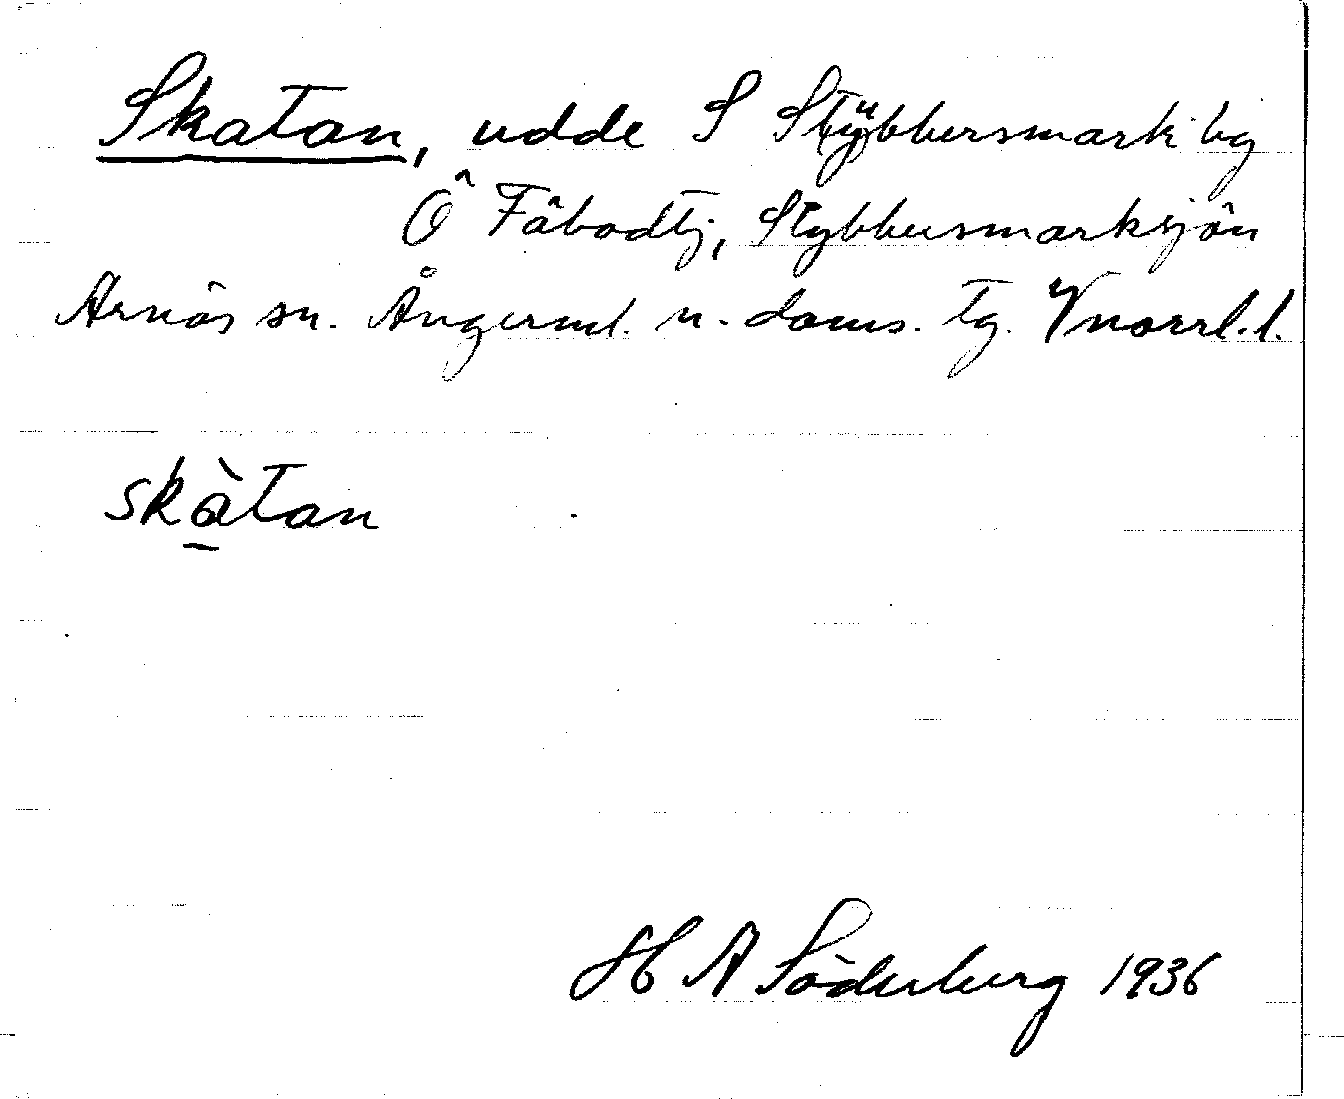 Skatan, udde S Stybbersmark by
Ö Fäbodtj, Stybbersmarksjön
Arnäs sn. Ångerml. n. doms. tg. Vnorrl. l.
skàtan
H A Söderberg 1936